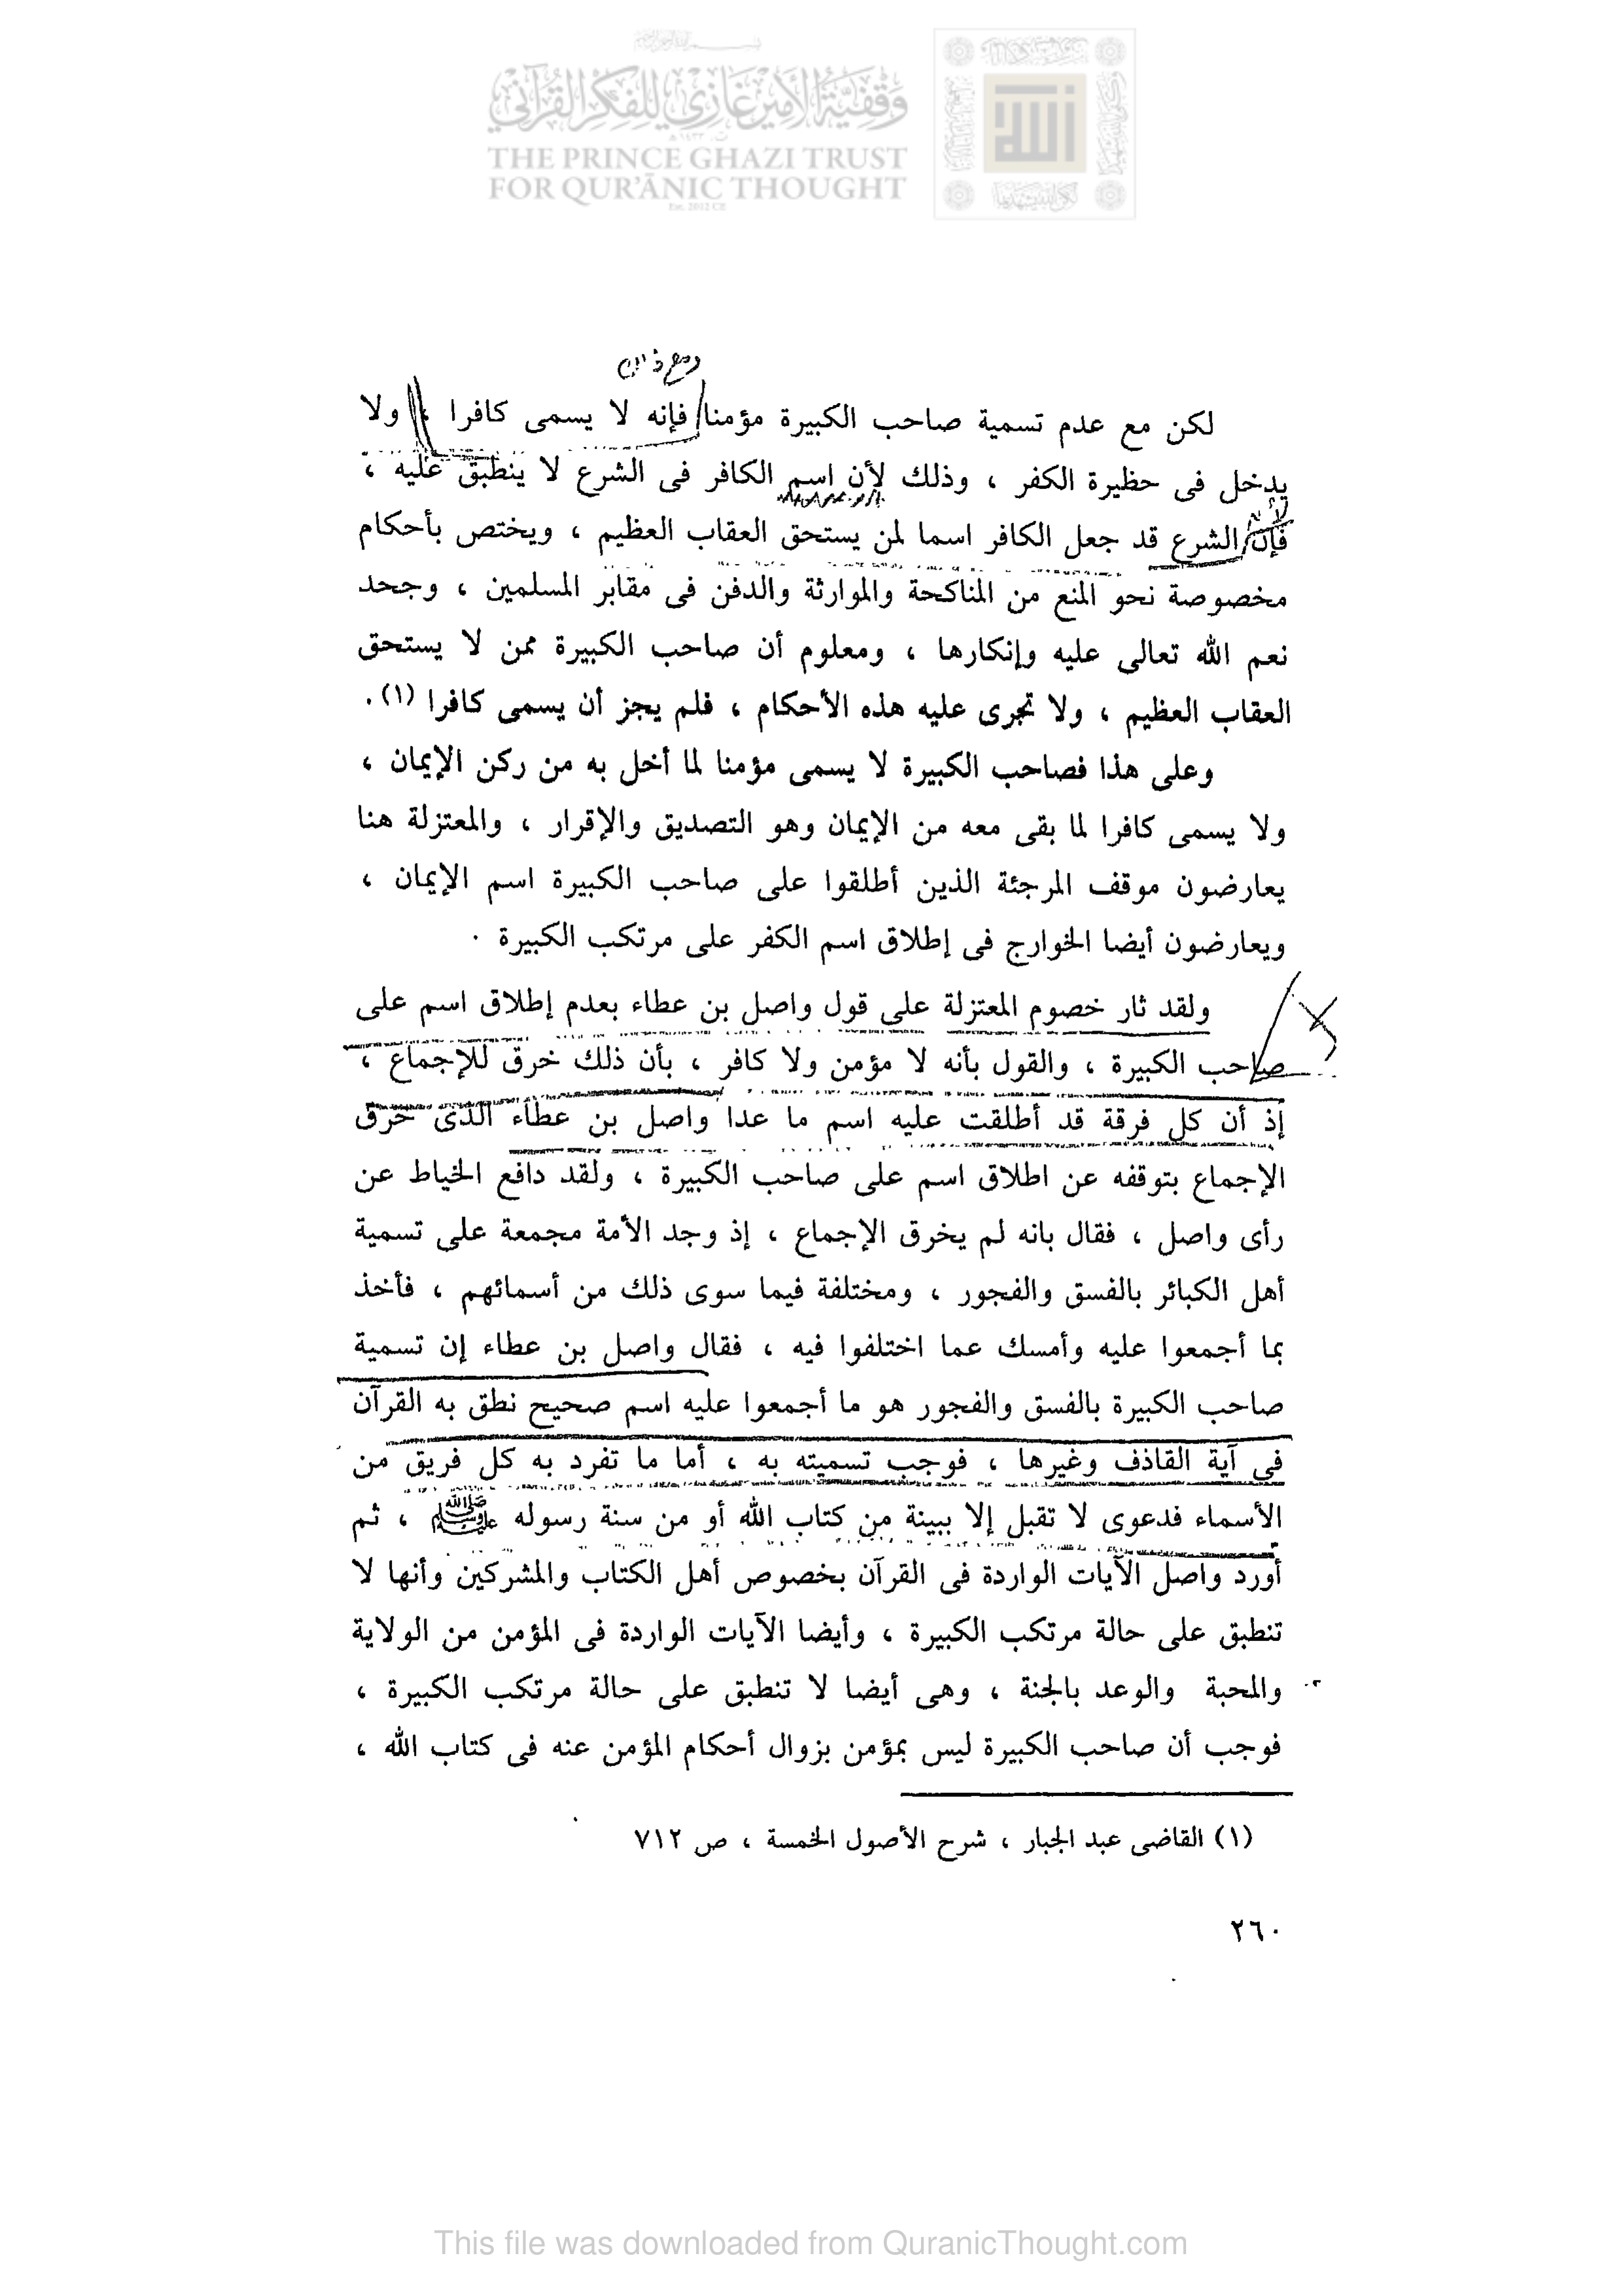 وقفية الأمير غازي للفكر القرآني
THE PRINCE GHAZI TRUST
FOR QUR'ĀNIC THOUGHT
Est. 2012 CE
الله
ومع ذلك
لكن مع عدم تسمية صاحب الكبيرة مؤمنا فإنه لا يسمى كافرا ، ولا
يدخل فى حظيرة الكفر ، وذلك لأن اسم الكافر فى الشرع لا ينطبق عليه ،
فإن الشرع قد جعل الكافر اسما لمن يستحق العقاب العظيم ، ويختص بأحكام
مخصوصة نحو المنع من المناكحة والموارثة والدفن فى مقابر المسلمين ، وجحد
نعم الله تعالى عليه وإنكارها ، ومعلوم أن صاحب الكبيرة ممن لا يستحق
العقاب العظيم ، ولا تجرى عليه هذه الأحكام ، فلم يجز أن يسمى كافرا (١).
وعلى هذا فصاحب الكبيرة لا يسمى مؤمنا لما أخل به من ركن الإيمان ،
ولا يسمى كافرا لما بقى معه من الإيمان وهو التصديق والإقرار ، والمعتزلة هنا
يعارضون موقف المرجئة الذين أطلقوا على صاحب الكبيرة اسم الإيمان ،
ويعارضون أيضا الخوارج فى إطلاق اسم الكفر على مرتكب الكبيرة .
ولقد ثار خصوم المعتزلة على قول واصل بن عطاء بعدم إطلاق اسم على
صاحب الكبيرة ، والقول بأنه لا مؤمن ولا كافر ، بأن ذلك خرق للإجماع ،
إذ أن كل فرقة قد أطلقت عليه اسم ما عدا واصل بن عطاء الذى خرق
الإجماع بتوقفه عن اطلاق اسم على صاحب الكبيرة ، ولقد دافع الخياط عن
رأى واصل ، فقال بانه لم يخرق الإجماع ، إذ وجد الأمة مجمعة على تسمية
أهل الكبائر بالفسق والفجور ، ومختلفة فيما سوى ذلك من أسمائهم ، فأخذ
بما أجمعوا عليه وأمسك عما اختلفوا فيه ، فقال واصل بن عطاء إن تسمية
صاحب الكبيرة بالفسق والفجور هو ما أجمعوا عليه اسم صحيح نطق به القرآن
فى آية القاذف وغيرها ، فوجب تسميته به ، أما ما تفرد به كل فريق من
الأسماء فدعوى لا تقبل إلا ببينة من كتاب الله أو من سنة رسوله ﷺ ، ثم
أورد واصل الآيات الواردة فى القرآن بخصوص أهل الكتاب والمشركين وأنها لا
تنطبق على حالة مرتكب الكبيرة ، وأيضا الآيات الواردة فى المؤمن من الولاية
والمحبة والوعد بالجنة ، وهى أيضا لا تنطبق على حالة مرتكب الكبيرة ،
فوجب أن صاحب الكبيرة ليس بمؤمن بزوال أحكام المؤمن عنه فى كتاب الله ،
(١) القاضى عبد الجبار ، شرح الأصول الخمسة ، ص ٧١٢
٢٦٠
This file was downloaded from QuranicThought.com